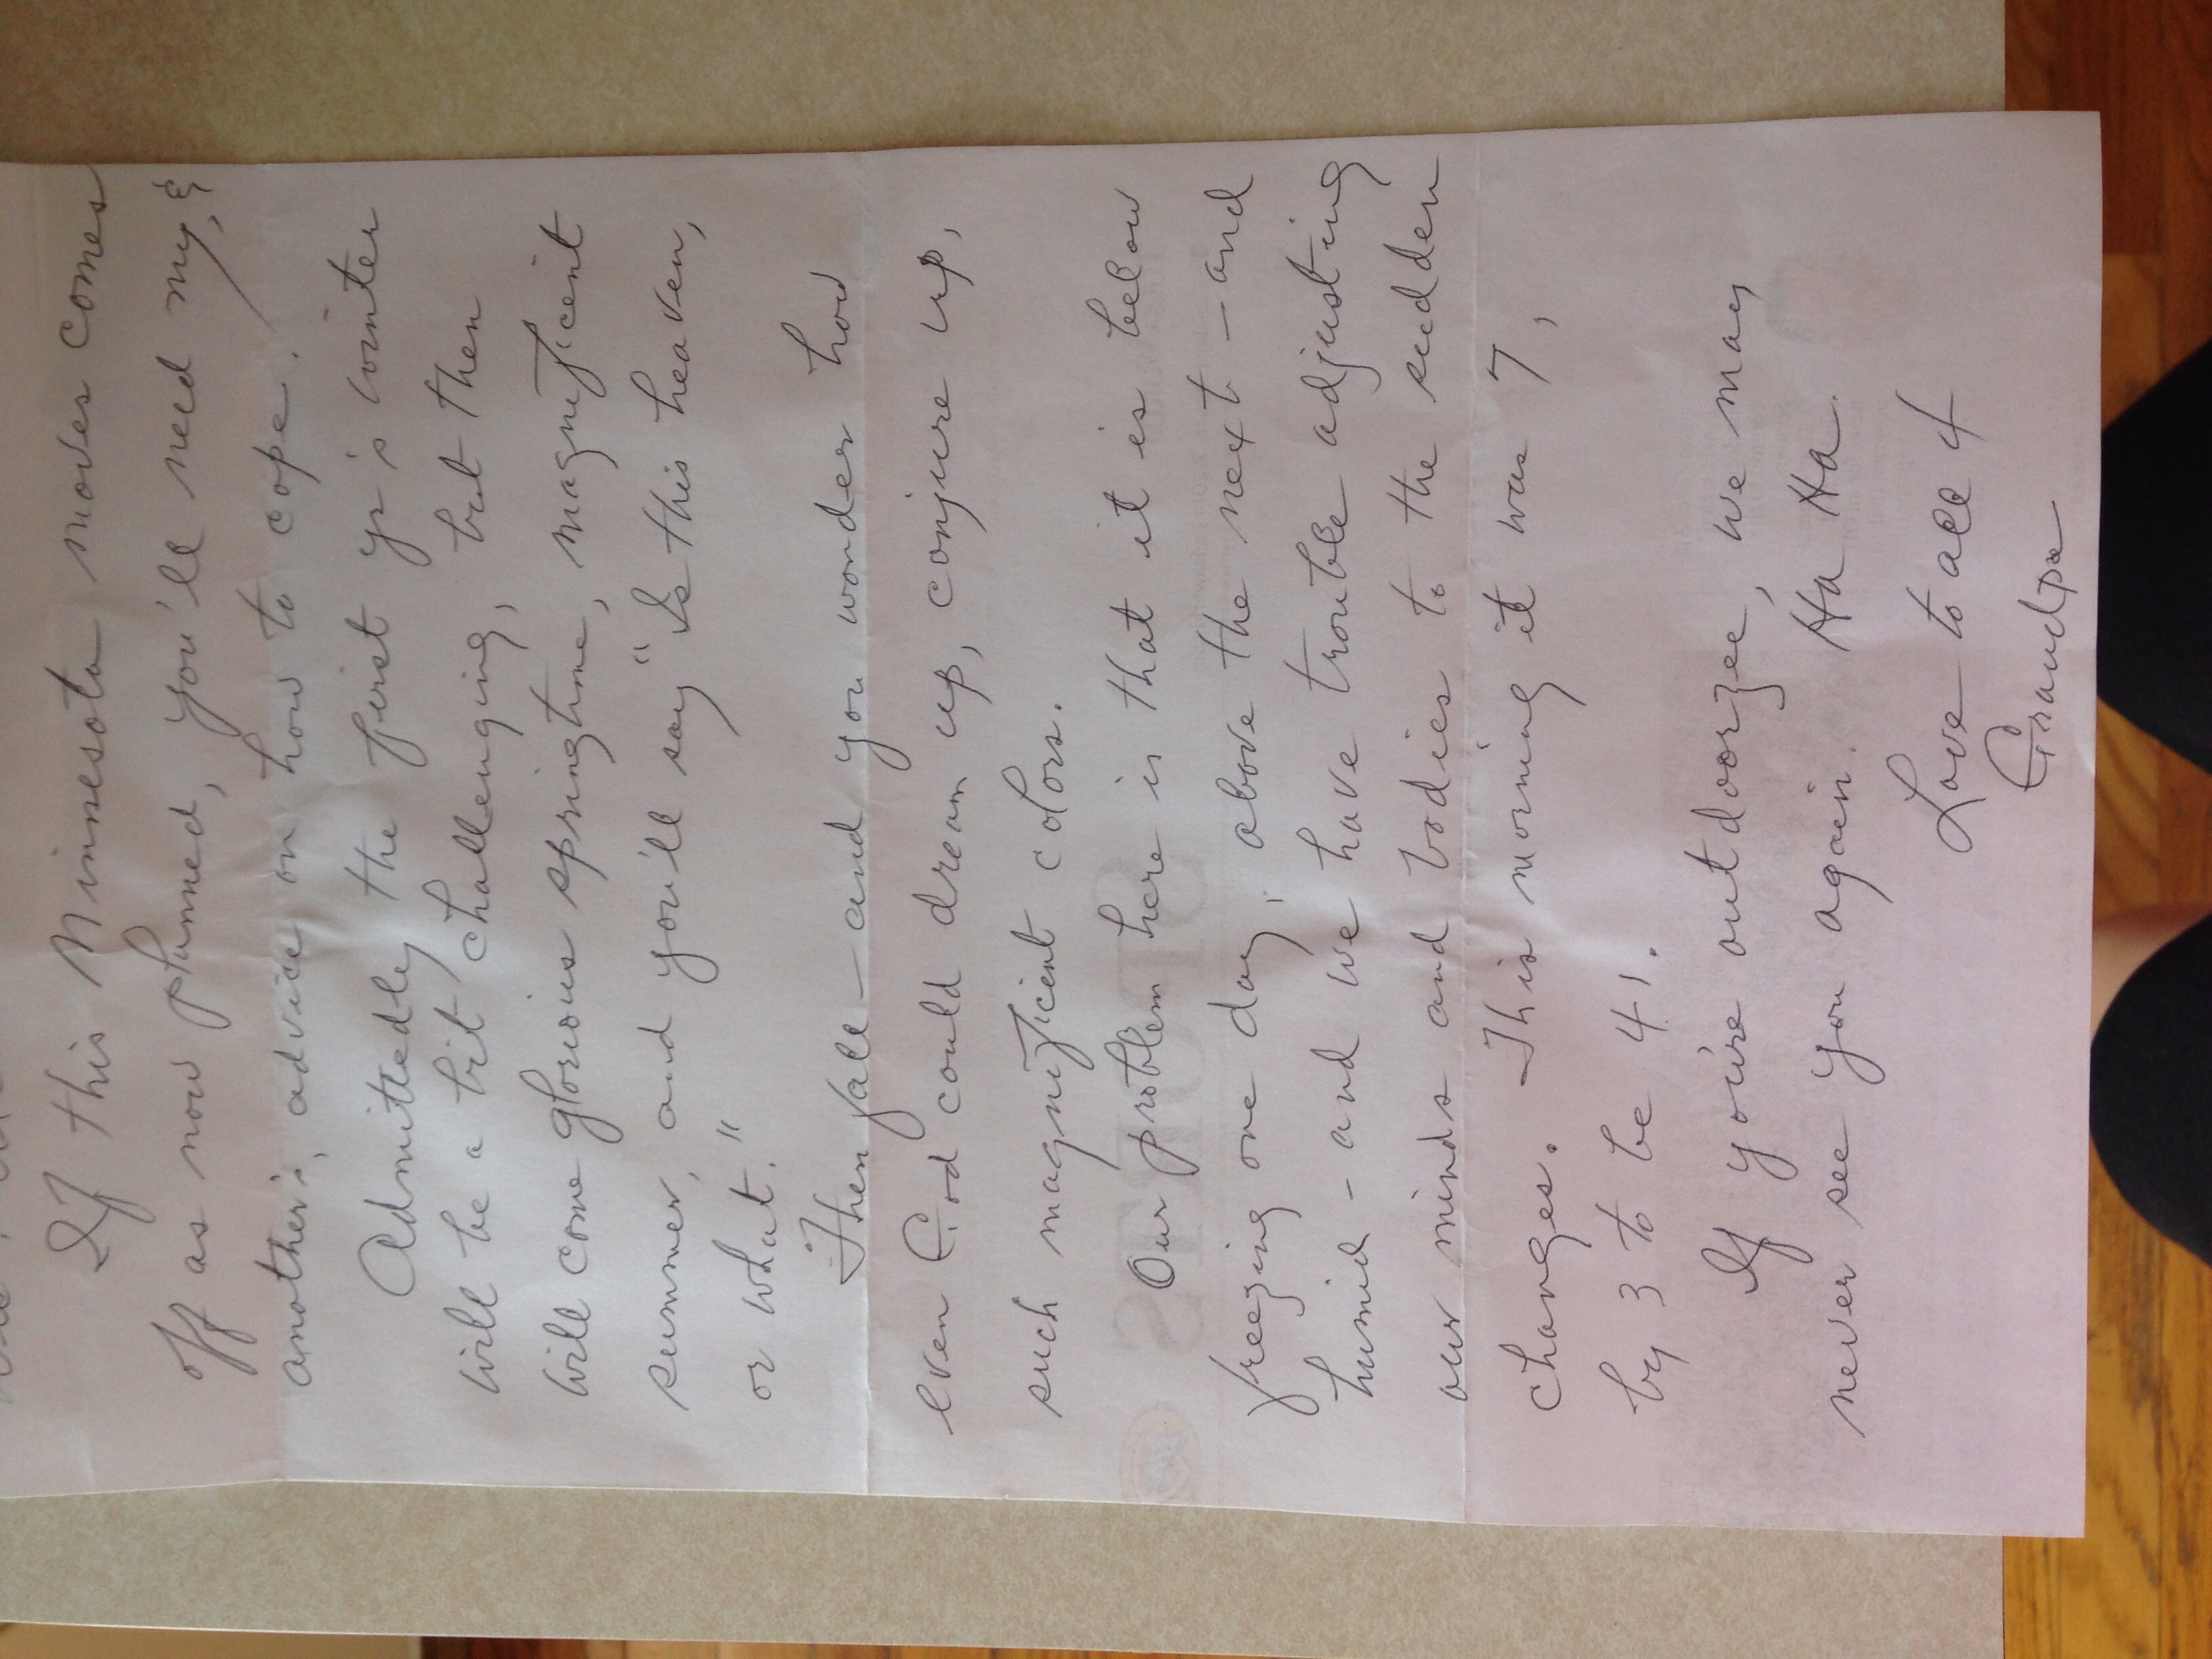 If this Minnesota moves comes
off as now planned, you'll need my, &
another's, advice on how to cope.
Admittedly the first yr's winter
will be a bit challenging, but then
will come glorious springtime, magnificent
summer, and you'll say "Is this heaven,
or what."
Then fall – and you wonder how
even God could dream up, conjure up,
such magnificent colors.
Our problem here is that it is below
freezing one day, above the next – and
humid – and we have trouble adjusting
our minds and bodies to the sudden
changes. This morning it was 7,
by 3 to be 41.
If you're outdoorzee, we may
never see you again. Ha Ha.
Love to all 4
Grandpa
SPORTS